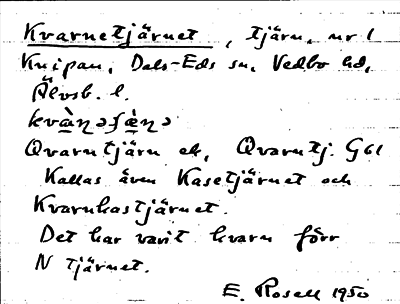 Kvarnetjärnet, tjärn, nr 1
Knipan, Dals-Eds sn, Vedbo hd,
Älvsb. l.
kvà̱ṇəʃæ̱̀ṇə
Qvarntjärn ek, Qvarntj. G61
Kallas även Kasetjärnet och
Kvarnkastjärnet.
Det har varit kvarn förr
N tjärnet.
E. Rosell 1950